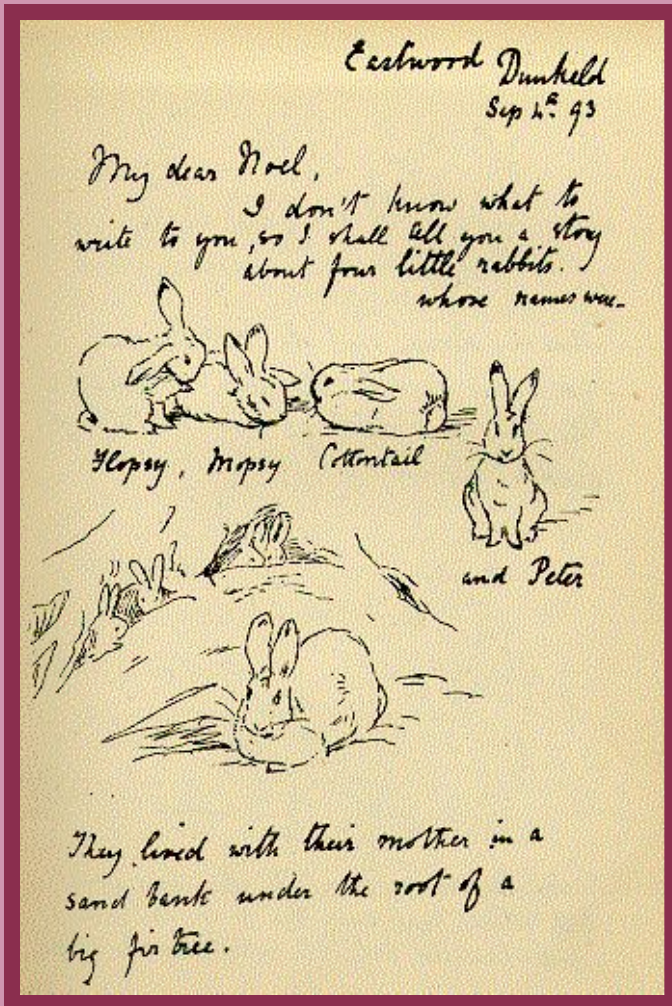 Eastwood Dunkeld
Sep 4th 93
My dear Noel,
I don't know what to
write to you, so I shall tell you a story
about four little rabbits.
whose names were_
Flopsy, Mopsy Cottontail
and Peter
They lived with their mother in a
sand bank under the root of a
big fir tree.